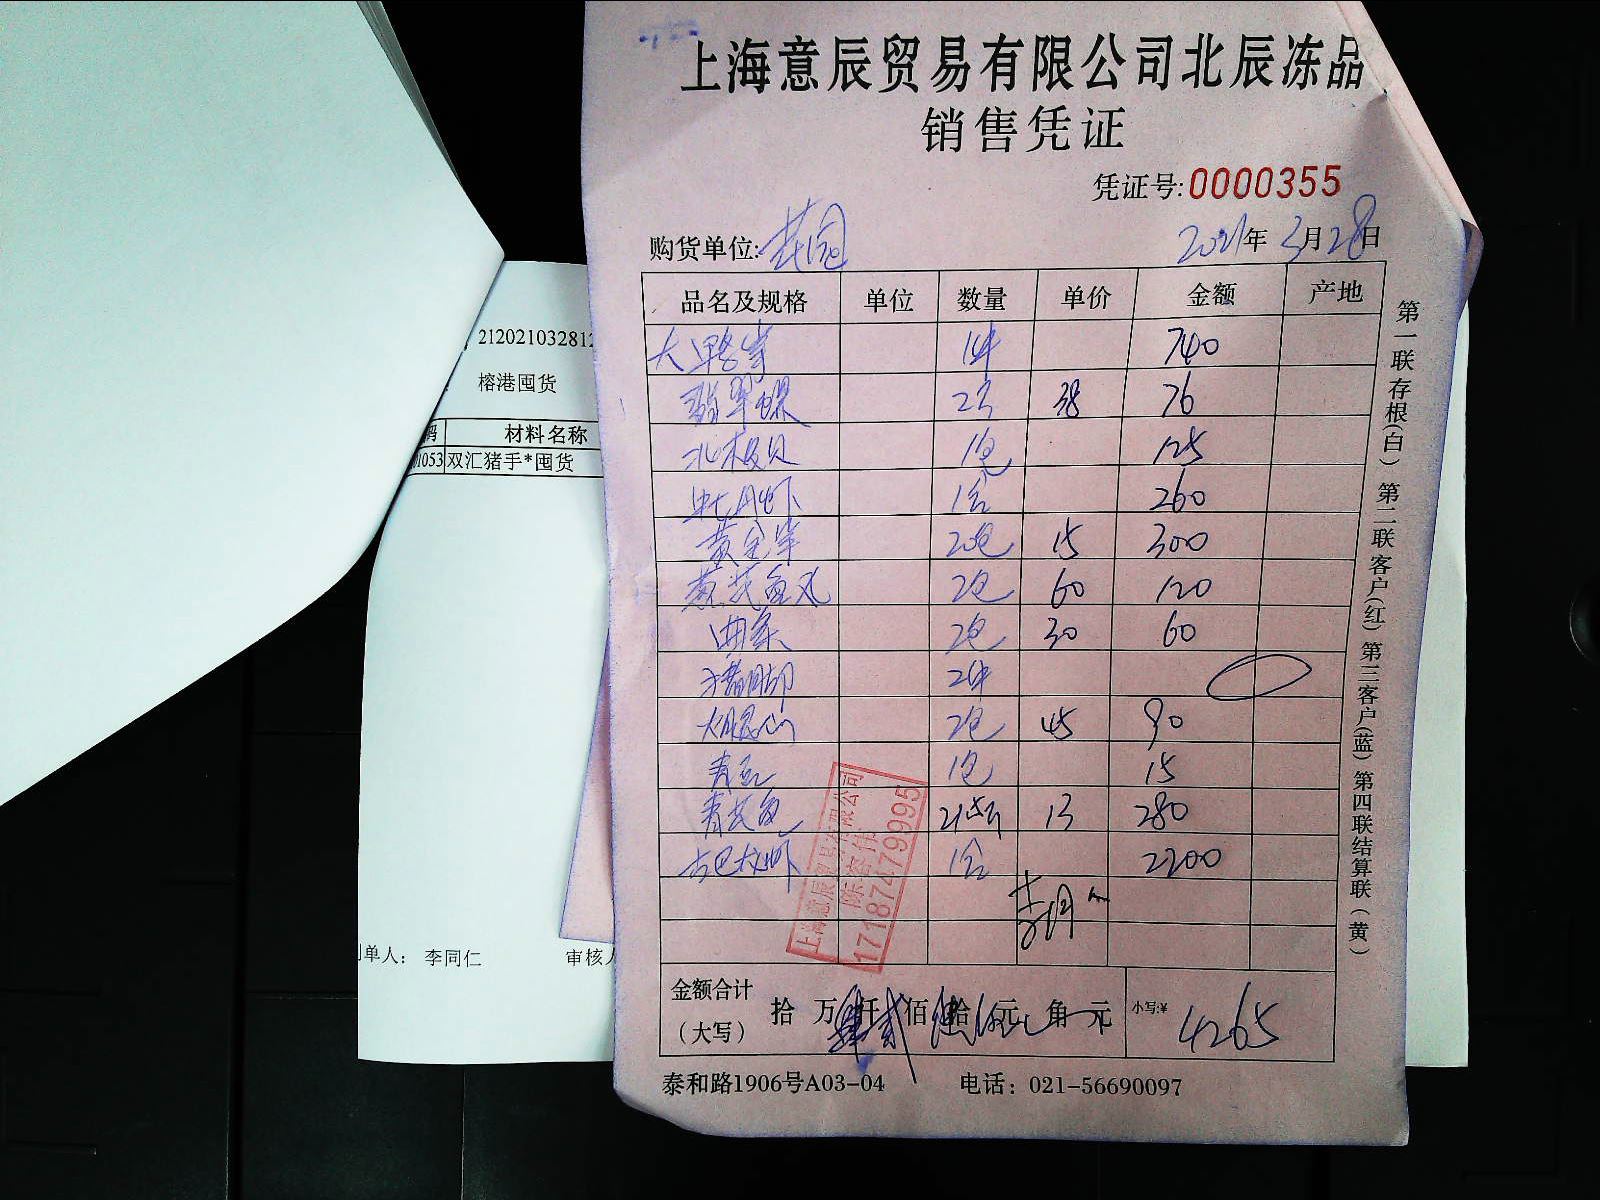 上海意辰贸易有限公司北辰冻品
销售凭证
凭证号:0000355
购货单位:
2021年3月28日
品名及规格 单位 数量 单价 金额 产地
大 14件 740
翡翠螺 2斤 38 76
北极贝 1包 125
牡丹虾 1盒 260
黄金 20包 15 300
鱼丸 2包 60 120
2包 30 60
猪脚 2件
2包 45 90
青豆 1包 15
青 鱼 13 280
古巴大虾 1盒 2200
上海意辰贸易有限公司
17187479995
金额合计
(大写)
拾 万 仟 佰 拾 元 角 元
小写:¥ 4265
泰和路1906号A03-04 电话: 021-56690097
第一联存根(白) 第二联客户(红) 第三客户(蓝) 第四联结算联(黄)
212021032812
榕港囤货
码 材料名称
01053 双汇猪手*囤货
制单人: 李同仁 审核人